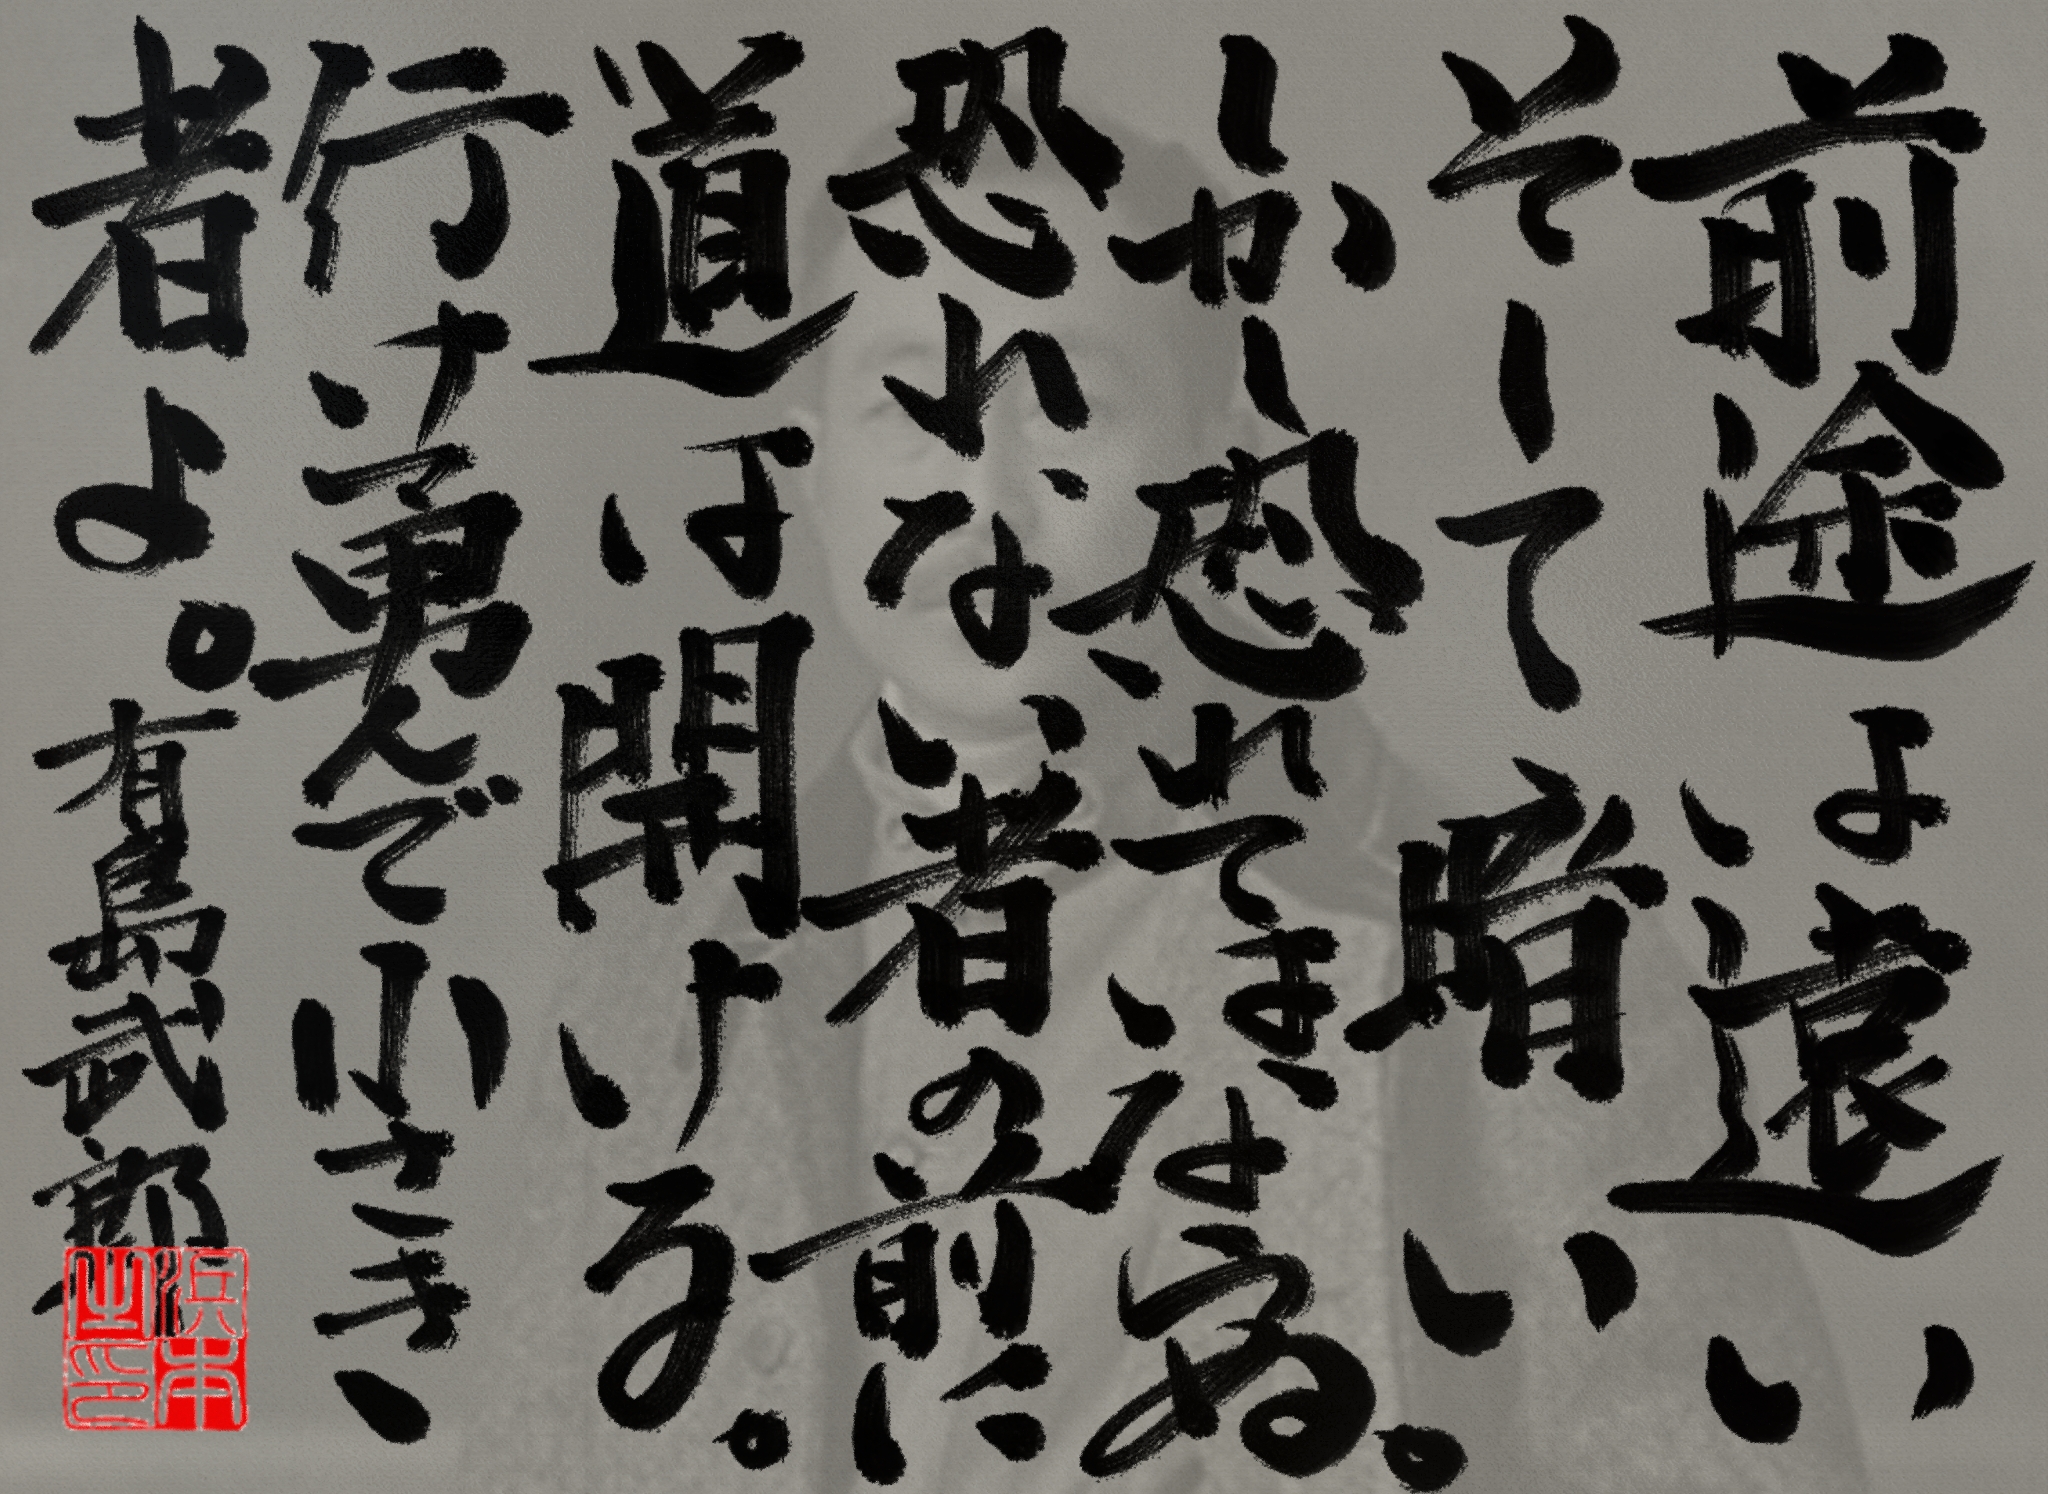 前途は遠い
そして暗い
しかし恐れてはならぬ。
恐れない者の前に
道は開ける。
行け勇んで小さき
者よ。
有島武郎
浜本之印